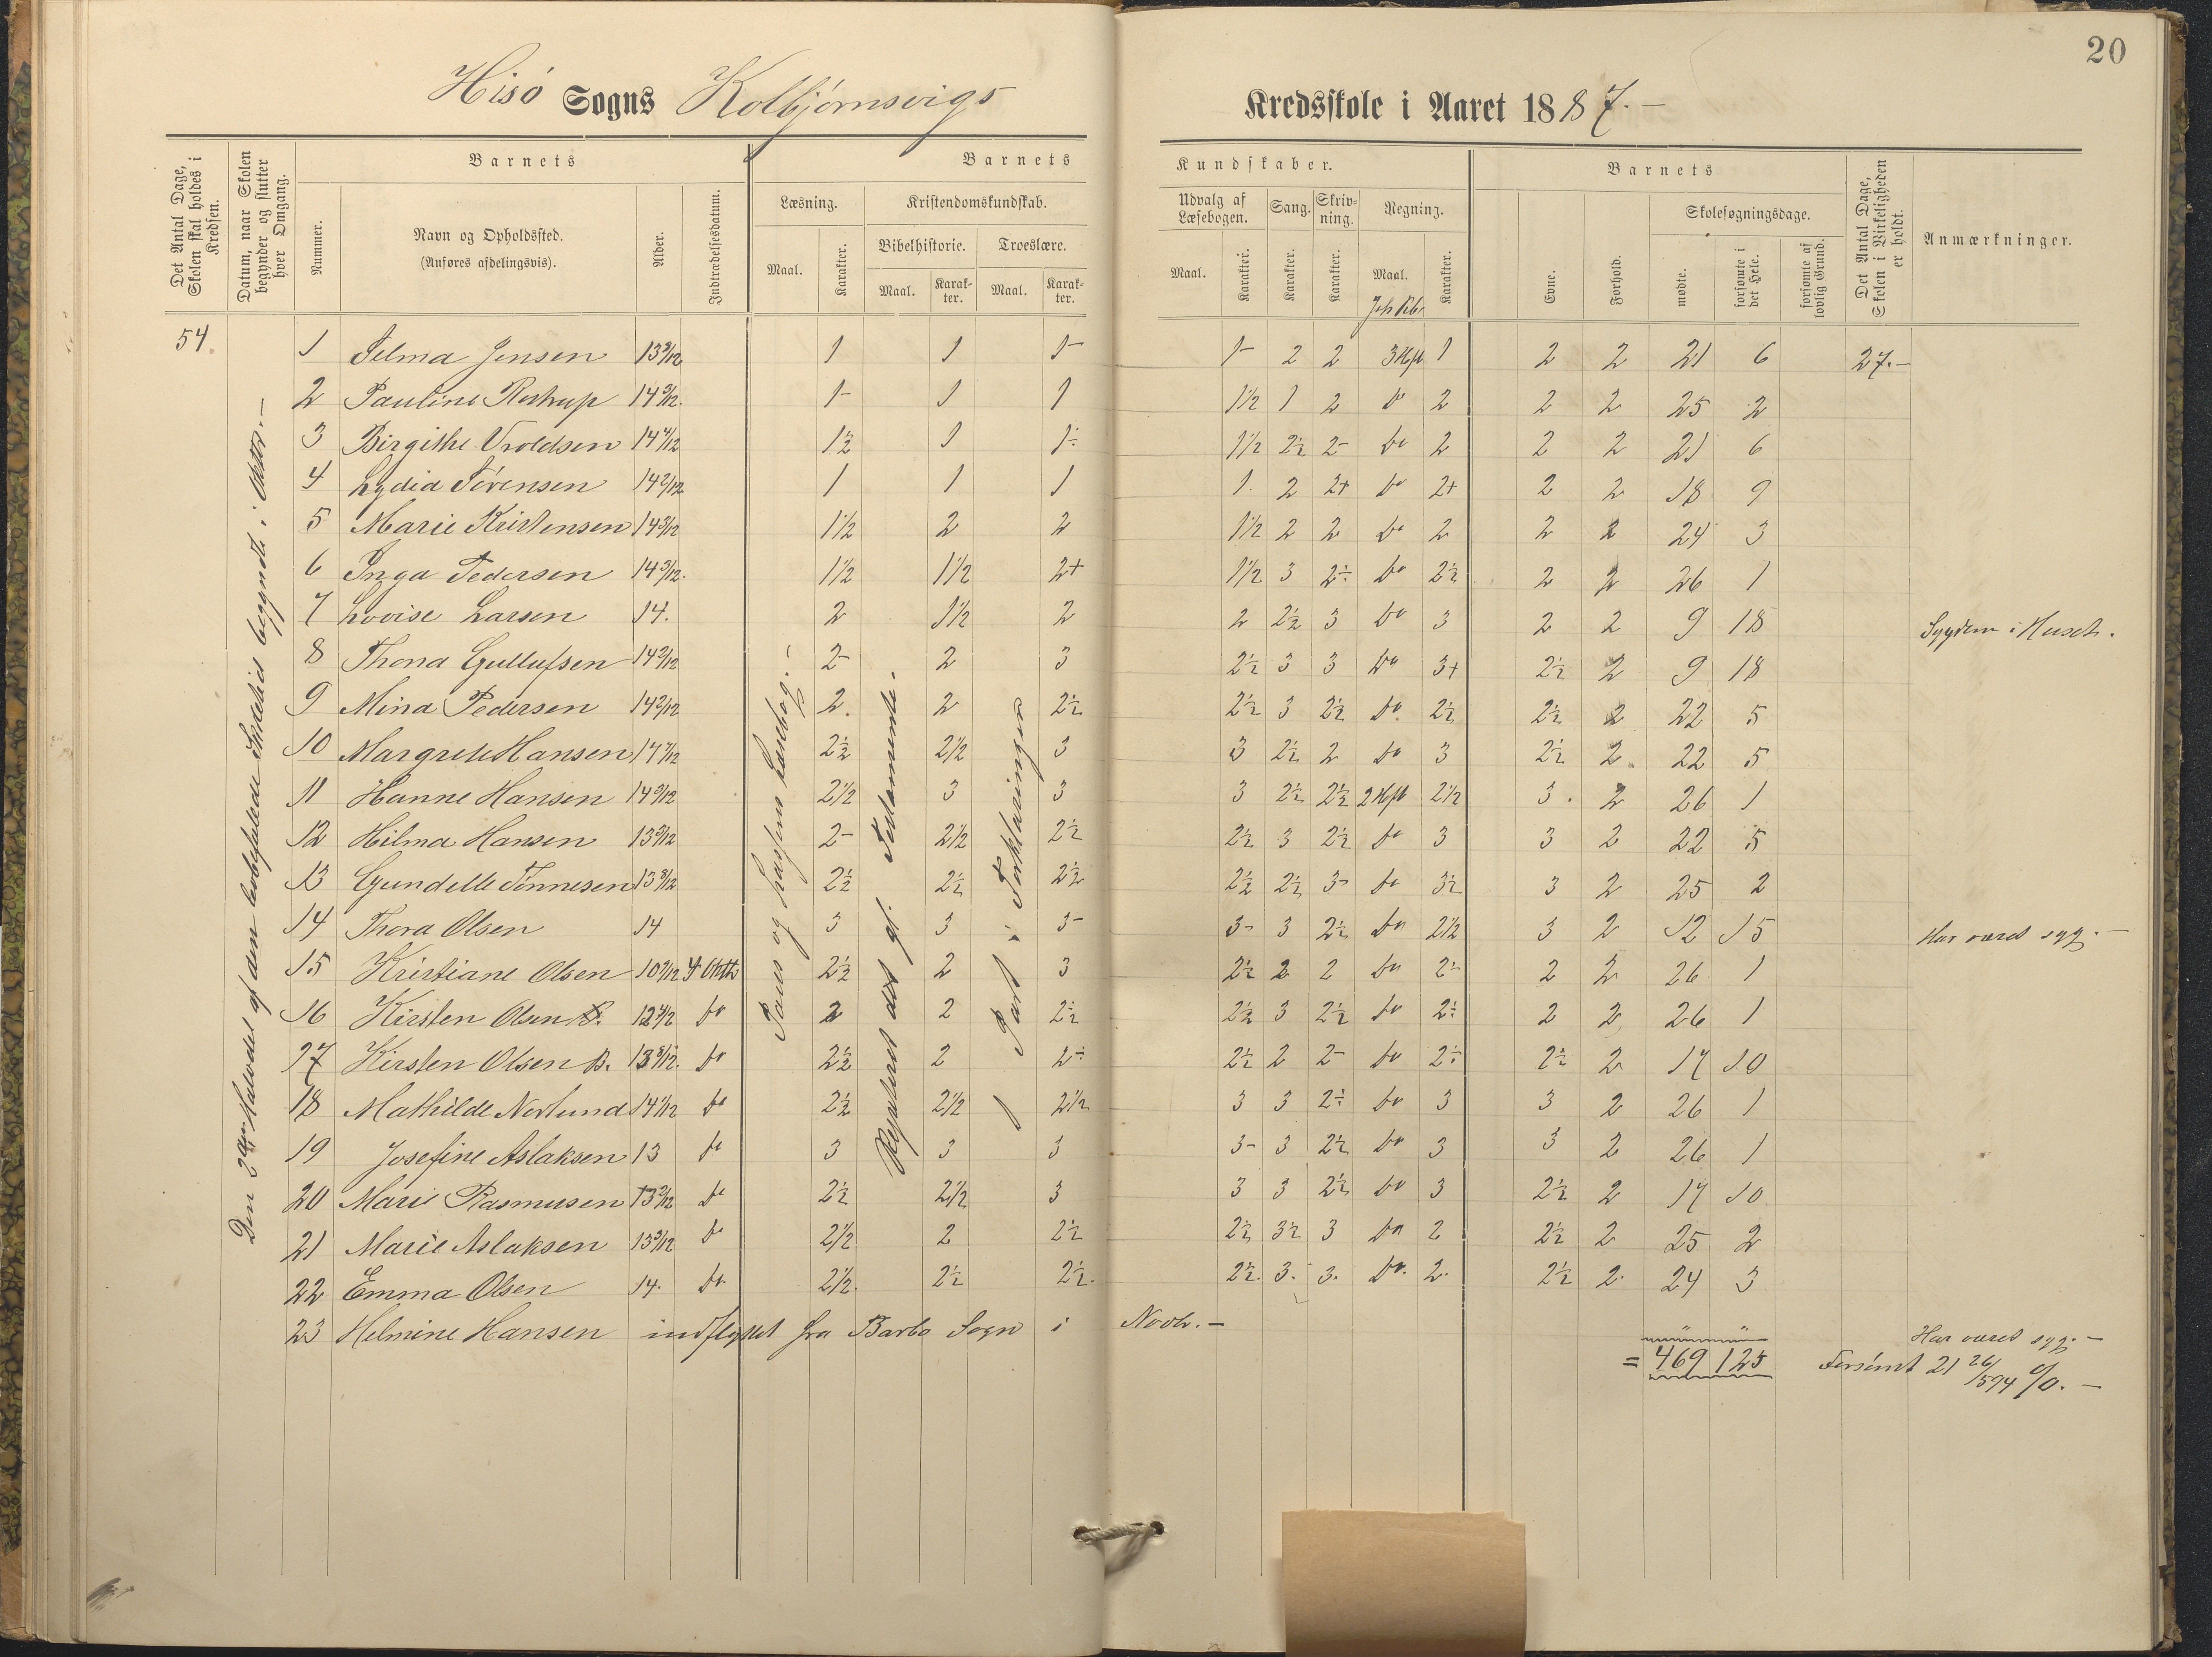 20
Hisö Sogns Kolbjörnsvigs Kredsskole i Aaret 1887.-
Det Antal Dage, Skolen skal holdes i Kredsen.
Datum, naar Skolen begynder og slutter hver Omgang.
Barnets
Nummer.
Navn og Opholdssted.
(Anføres afdelingsvis).
Alder.
Indtrædelsesdatum.
Barnets Kundskaber.
Læsning.
Maal.
Karakter.
Kristendomskundskab.
Bibelhistorie.
Maal.
Karakter.
Troeslære.
Maal.
Karakter.
Udvalg af Læsebogen.
Maal.
Karakter.
Sang.
Karakter.
Skrivning.
Karakter.
Regning.
Maal.
Karakter.
Barnets
Evne.
Forhold.
Skolesøgningsdage.
mødte.
forsømte i det Hele.
forsømte af lovlig Grund.
Det Antal Dage, Skolen i Virkeligheden er holdt.
Anmærkninger.
54
Den 2den Halvdel af den lovbefalede Skoletid begyndt i Oktbr.-
Pauss og Lassens Læsebog.-
Repeteret det gl. Testamente.
1 Part i Forklaringen
1 Selma Jensen 13 9/12 1 1 1- 1- 2 2 3 Hft 1 2 2 21 6 27.-
2 Pauline Rostrup 14 5/12. 1- 1 1 1½ 1 2 do 2 2 2 25 2
3 Birgithe Uroldsen 14 4/12 1½ 1 1÷ 1½ 2½ 2- do 2 2 2 21 6
4 Lydia Sörensen 14 2/12 1 1 1 1. 2 2+ do 2+ 2 2 18 9
5 Marie Kristensen 14 3/12 1½ 2 2 1½ 2 2 do 2 2 2 24 3
6 Inga Pedersen 14 3/12. 1½ 1½ 2+ 1½ 3 2÷ do 2½ 2 2 26 1
7 Lovise Larsen 14. 2 1½ 2 2 2½ 3 do 3 2 2 9 18 Sygdom i Huset.
8 Thona Gullufsen 14 2/12 2- 2 3 2½ 3 3 do 3+ 2½ 2 9 18
9 Mina Pedersen 14 2/12 2. 2 2½ 2½ 3 2½ do. 2½ 2½ 2 22 5
10 Margrete Hansen 14 7/12 2½ 2½ 3 3 2½ 2 do 3 2½ 2 22 5
11 Hanne Hansen 14 9/12 2½ 3 3 3 2½ 2½ 2 Hft 2½ 3. 2 26 1
12 Hilma Hansen 13 3/12 2- 2½ 2½ 2½ 3 2½ do 3 3 2 22 5
13 Gundelle Tönnesen 13 8/12 2½ 2½ 2½ 2½ 2½ 3- do 3½ 3 2 25 2
14 Thora Olsen 14 3 3 3- 3- 3 2½ do 2½ 3 2 12 15 Har været syg.-
15 Kristiane Olsen 10 9/12 2½ 2 3 2½ 2 2 do 2÷ 2 2 26 1
16 Kirsten Olsen 12 4/12 do 2 2 2½ 2½ 3 2½ do 2÷ 2 2 26 1
17 Kirsten Olsen B. 13 8/12. do 2½ 2 2÷ 2½ 2 2- do 2÷ 2½ 2 17 10
18 Mathilde Norlund 14 1/12 do 2½ 2½ 2½ 3 3 2÷ do 3 3 2 26 1
19 Josefine Aslaksen 13 do 3 3 3 3- 3 2½ do 3 3 2 26 1
20 Marie Rasmusen 13 2/12 do 2½ 2½ 3 3 3 2½ do 3 2½ 2 17 10
21 Marie Aslaksen 13 9/12 do 2½ 2 2½ 2½ 3½ 3 do 2 2½ 2 25 2
22 Emma Olsen 14. do. 2½. 2½ 2½. 2½. 3. 3. do. 2. 2½ 2. 24 3
23 Helmine Hansen indflyttet fra Barbo Sogn i Novbr.- Har været syg.-
= 469 125 Forsömt 21 26/594 %.-